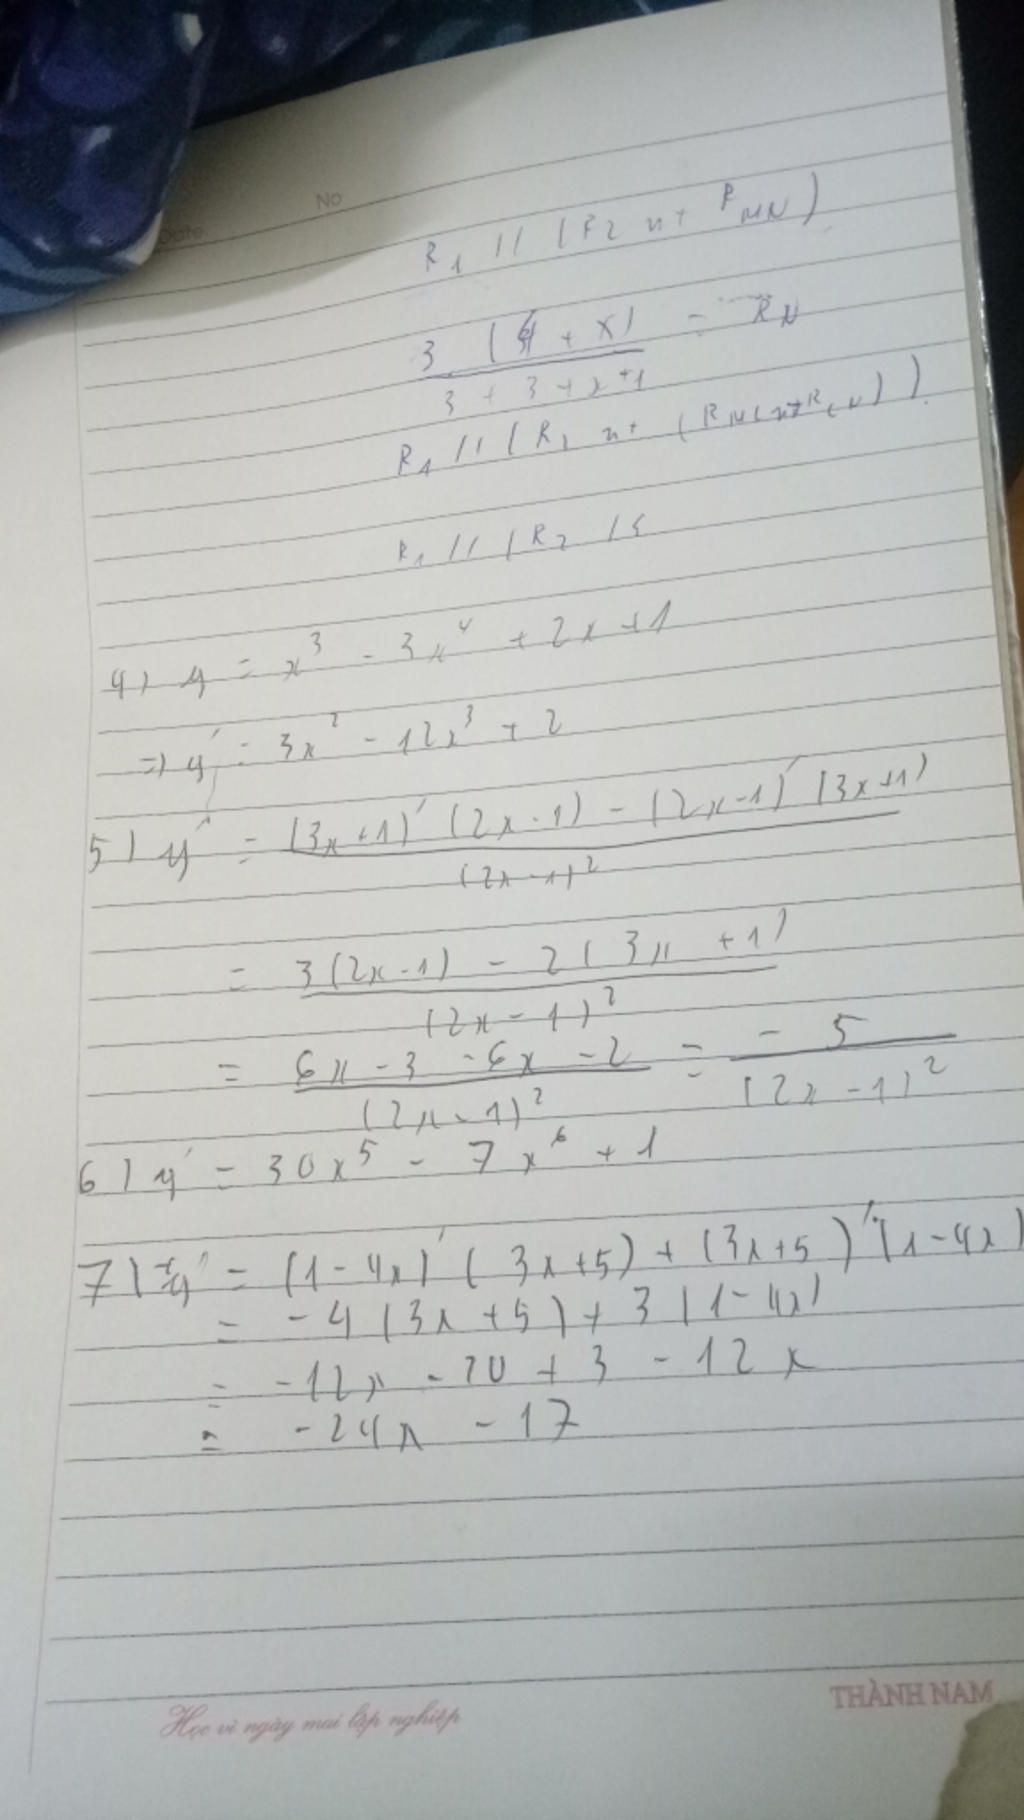 No
Date
R1 // (R2 nt RMN)
3 (4 + x) = RN
3 + 3 + x + 1
R1 // (R2 nt
R1 // (R2 //
4) y = x³ - 3x⁴ + 2x + 1
=> y' = 3x² - 12x³ + 2
5) y' = (3x + 1)' (2x - 1) - (2x - 1)' (3x + 1)
(2x - 1)²
= 3(2x - 1) - 2(3x + 1)
(2x - 1)²
= 6x - 3 - 6x - 2 = - 5
(2x - 1)² (2x - 1)²
6) y' = 30x⁵ - 7x⁶ + 1
7) y' = (1 - 4x)' (3x + 5) + (3x + 5)' (1 - 4x)
= -4(3x + 5) + 3(1 - 4x)
= -12x - 20 + 3 - 12x
= -24x - 17
Học vì ngày mai lập nghiệp
THÀNH NAM